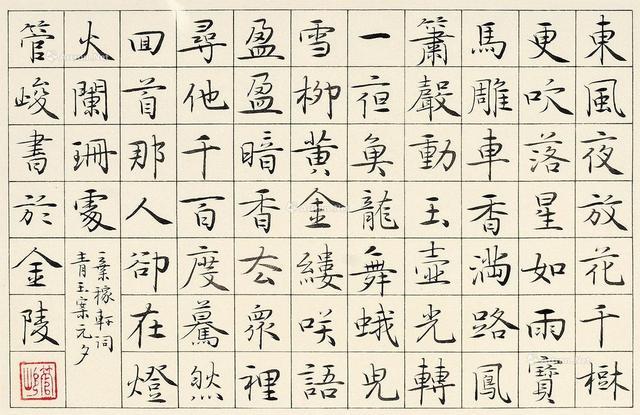 東風夜放花千樹
更吹落星如雨寶
馬雕車香滿路鳳
簫聲動玉壺光轉
一夜魚龍舞蛾兒
雪柳黃金縷咲語
盈盈暗香去衆裡
尋他千百度驀然
回首那人卻在燈
火闌珊處
辛稼軒詞
青玉案元夕
管峻書於金陵